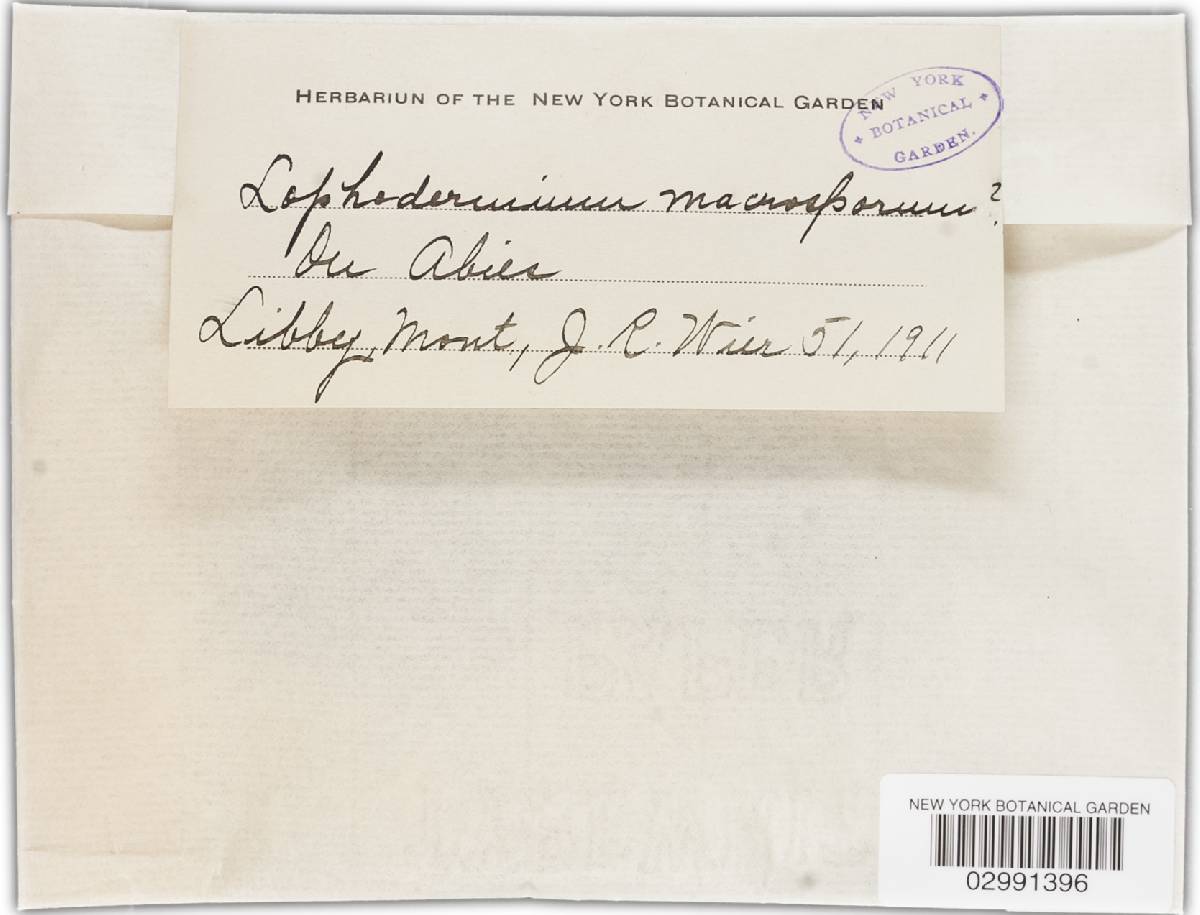 HERBARIUN OF THE NEW YORK BOTANICAL GARDEN
NEW YORK
* BOTANICAL *
GARDEN.
Lophodermium macrosporum?
On Abies
Libby, Mont, J. R. Wier 51, 1911
NEW YORK BOTANICAL GARDEN
02991396